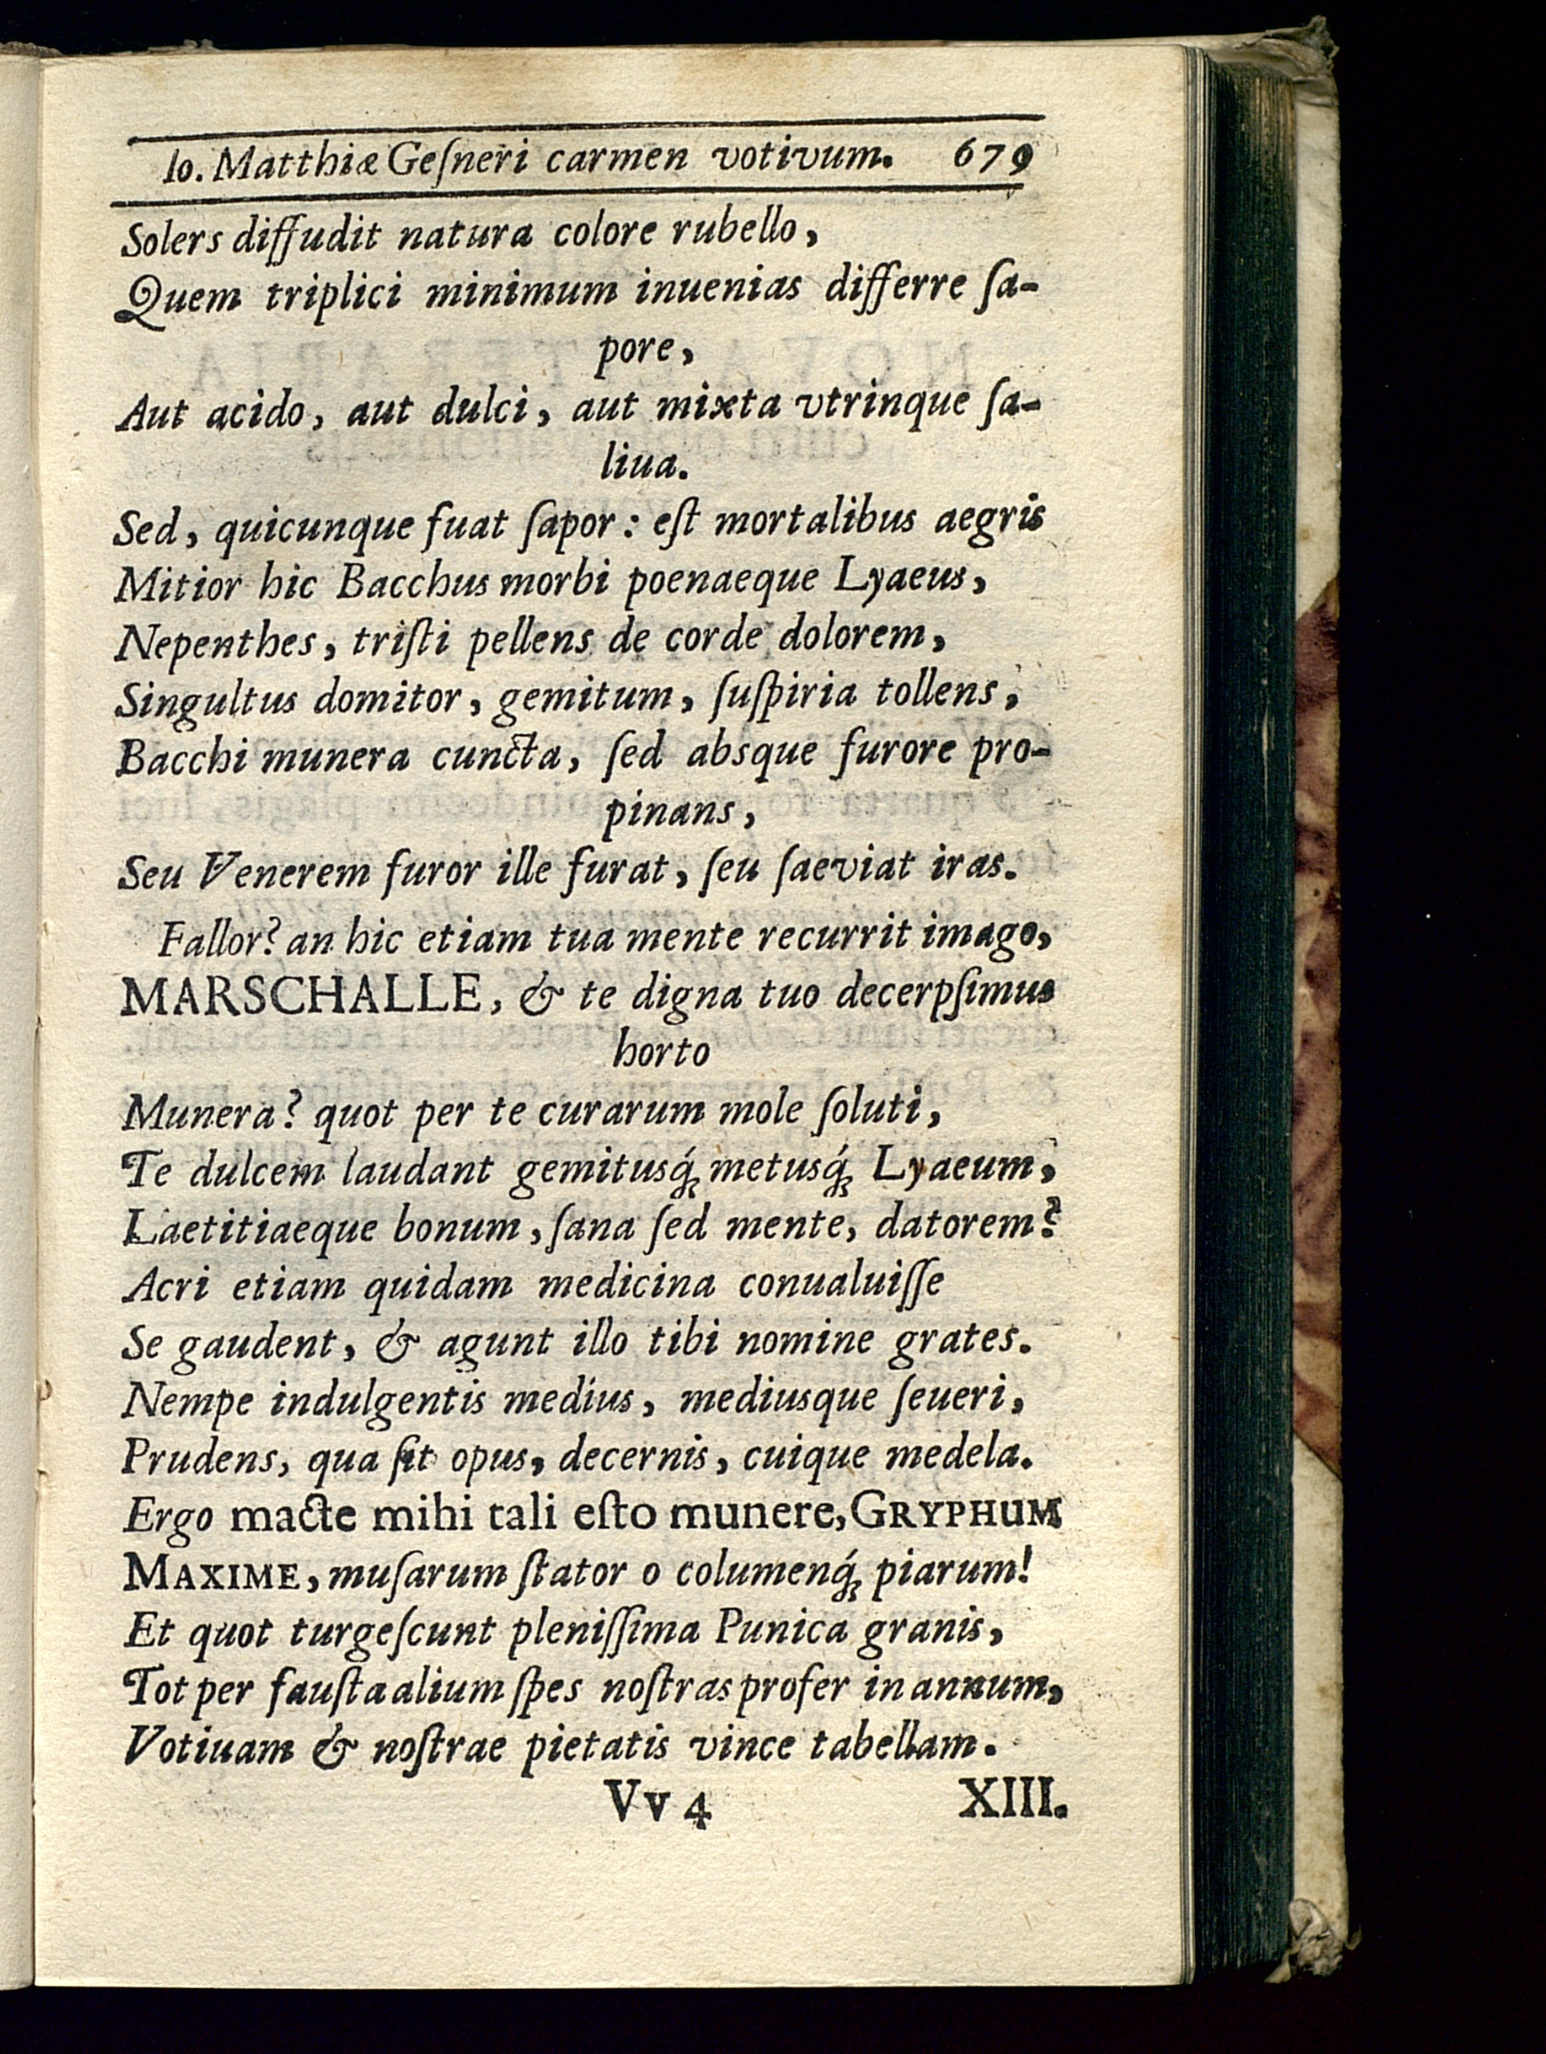 Io. Matthiæ Geſneri carmen votivum. 679
Solers diffudit natura colore rubello,
Quem triplici minimum inuenias differre ſa-
pore,
Aut acido, aut dulci, aut mixta vtrinque ſa-
liua.
Sed, quicunque fuat ſapor: eſt mortalibus aegris
Mitior hic Bacchus morbi poenaeque Lyaeus,
Nepenthes, triſti pellens de corde dolorem,
Singultus domitor, gemitum, ſuſpiria tollens,
Bacchi munera cuncta, ſed absque furore pro-
pinans,
Seu Venerem furor ille furat, ſeu ſaeviat iras.
Fallor? an hic etiam tua mente recurrit imago,
MARSCHALLE, & te digna tuo decerpſimus
horto
Munera? quot per te curarum mole ſoluti,
Te dulcem laudant gemitusq́; metusq́; Lyaeum,
Laetitiaeque bonum, ſana ſed mente, datorem?
Acri etiam quidam medicina conualuiſſe
Se gaudent, & agunt illo tibi nomine grates.
Nempe indulgentis medius, mediusque ſeueri,
Prudens, qua ſit opus, decernis, cuique medela.
Ergo macte mihi tali eſto munere, GRYPHUM
MAXIME, muſarum ſtator o columenq́; piarum!
Et quot turgeſcunt pleniſſima Punica granis,
Tot per fauſta alium ſpes noſtras profer in annum,
Votiuam & noſtrae pietatis vince tabellam.
Vv 4 XIII.